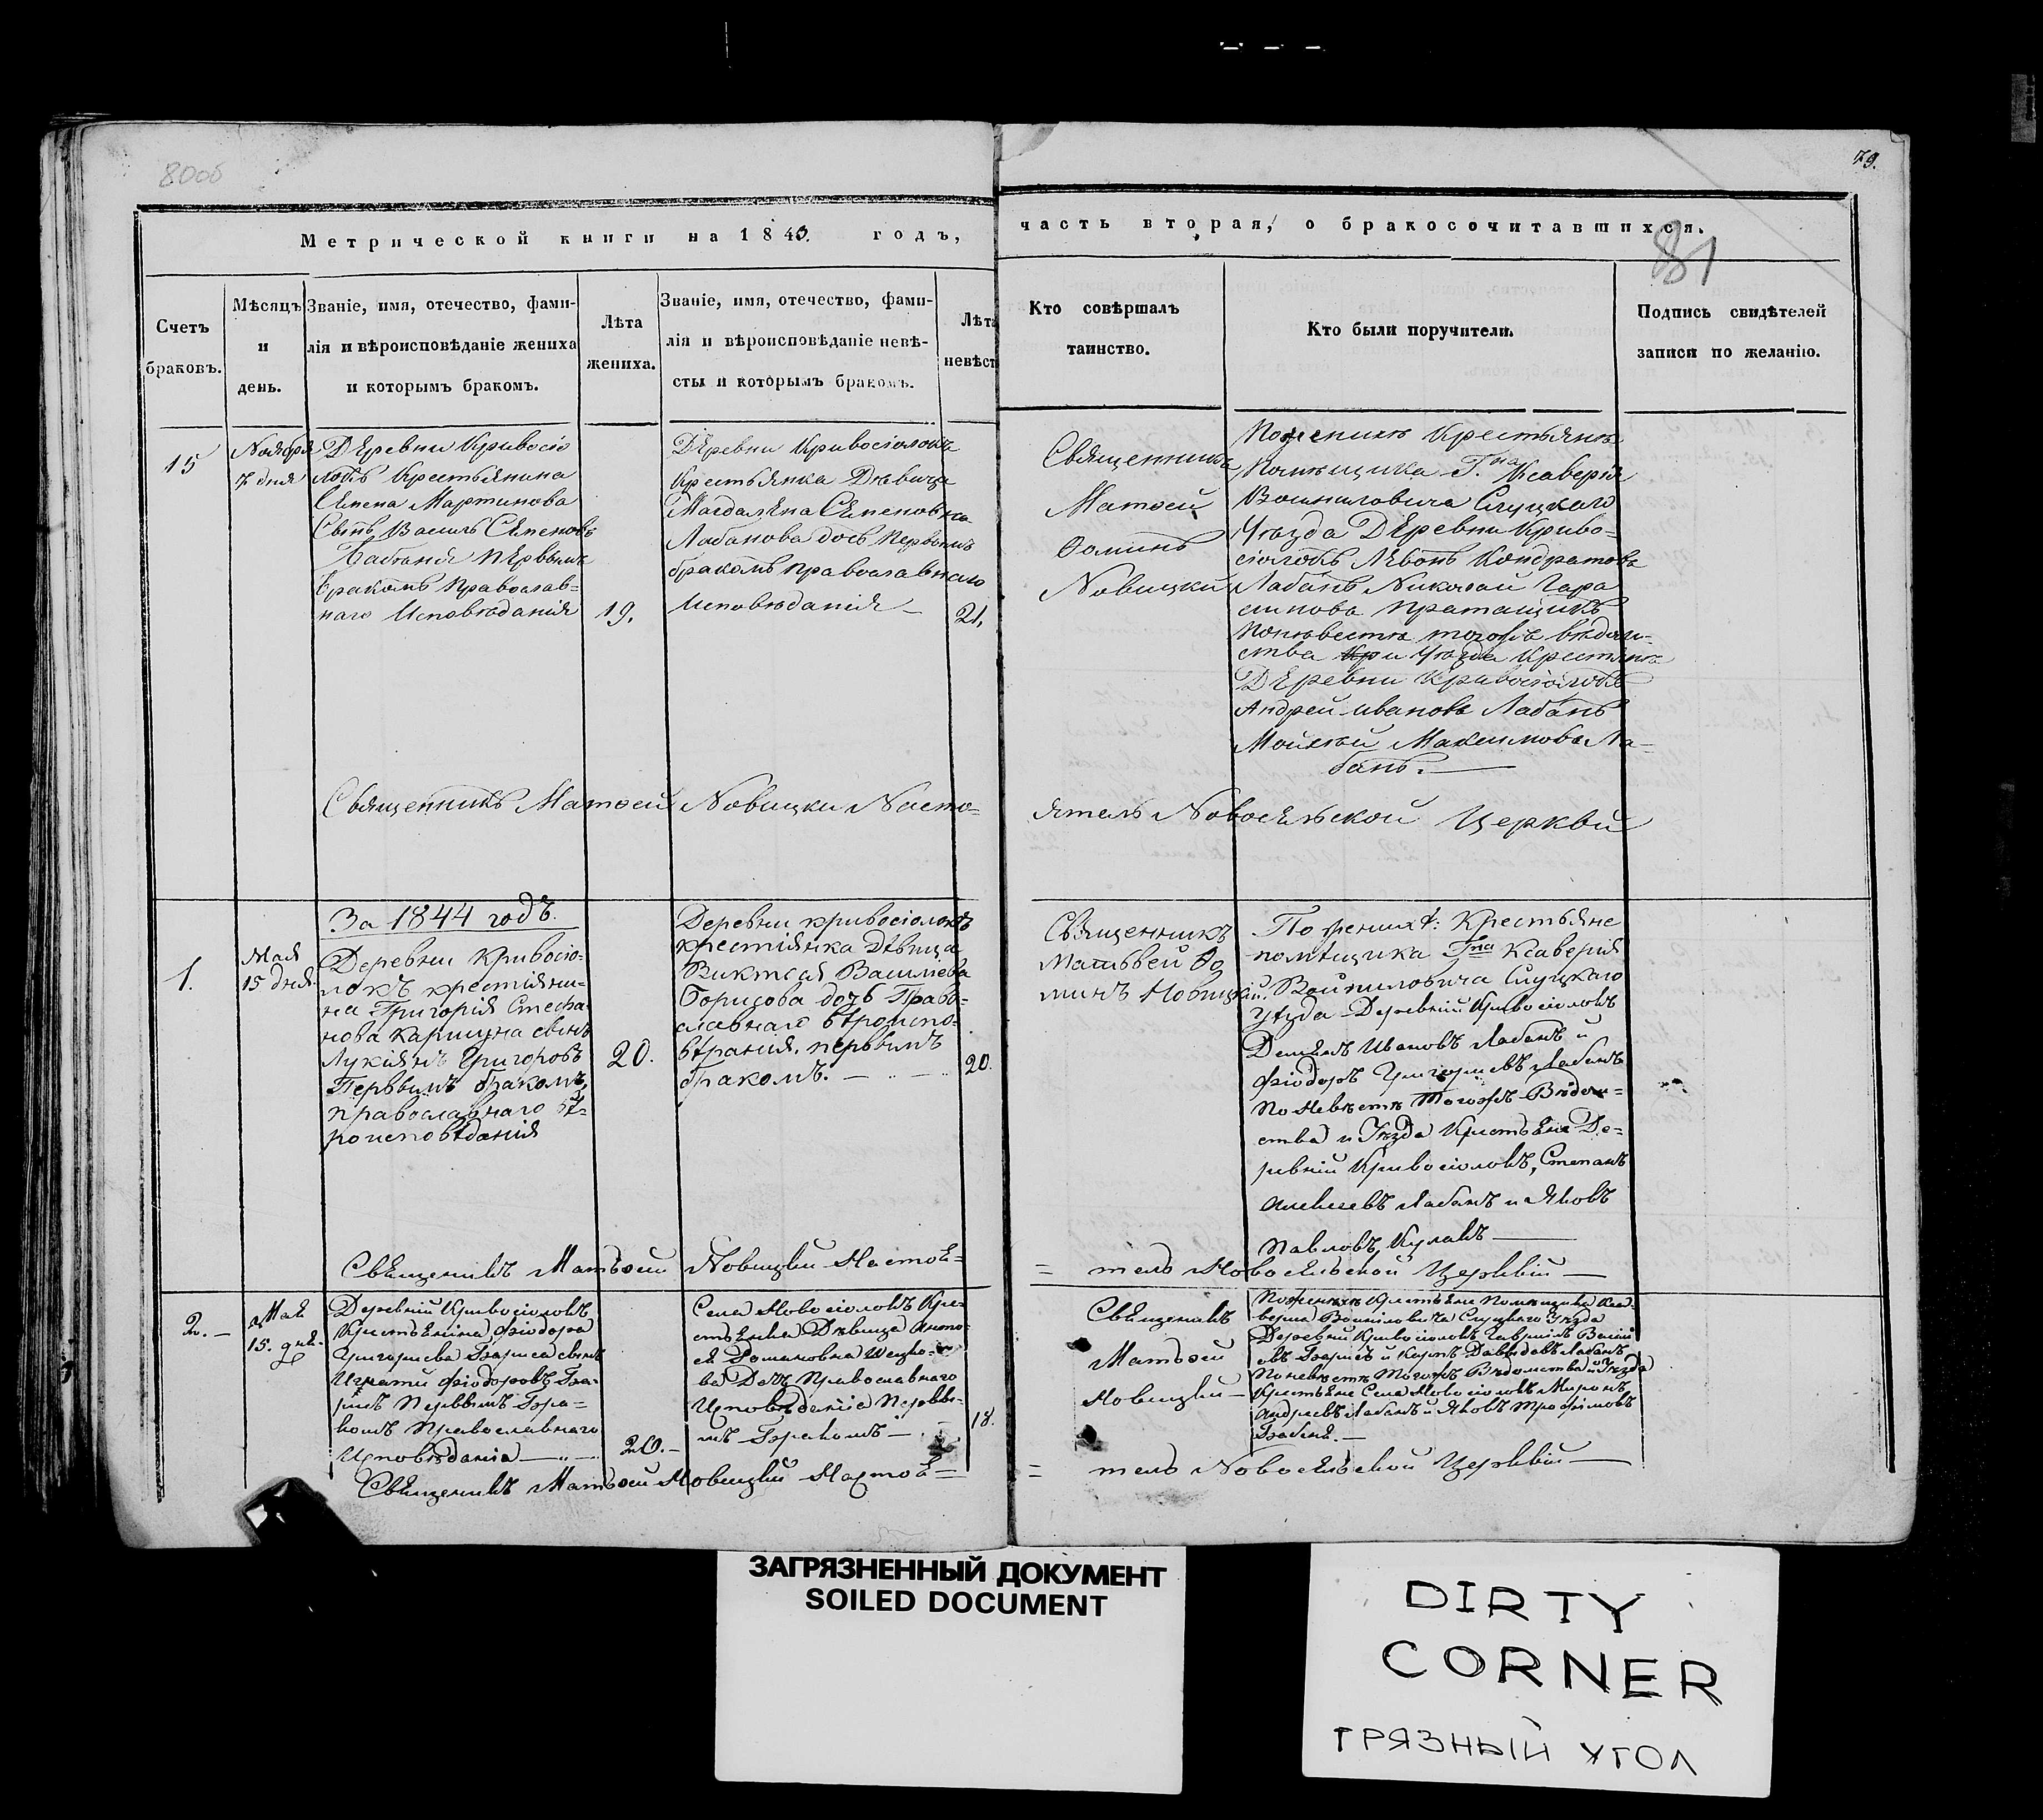 80об
79.
81
Метрической книги на 1843. годъ,
часть вторая, о бракосочитавшихся.
Счетъ браковъ.
Мѣсяцъ и день.
Званіе, имя, отечество, фами-
лія и вѣроисповѣданіе жениха
и которымъ бракомъ.
Лѣта жениха.
Званіе, имя, отечество, фами-
лія и вѣроисповѣданіе невѣ-
сты и которымъ бракомъ.
Лѣта невѣст
Кто совѣршалъ
таинство.
Кто были поручители.
Подпись свидѣтелей
записи по желанію.
15
Ноября
7 дня
Деревни Кривосіо
локъ Крестьянина
Семена Мартинова
Сынъ Василь Семеновъ
первымъ
бракомъ Православ-
наго Исповѣданія
19.
Деревни Кривосіолокъ
Крестьянка Дѣвица
Магдалена Семеновна
Лабанова дочь Первымъ
бракомъ православнаго
Исповѣданія —
21.
Священникъ
Матѳей
Ѳоминъ
Новицки
Поженихѣ Крестьянѣ
Помѣщика Гна Ксаверія
Войниловича Слуцкаго
Уѣзда Деревни Криво-
сіолокъ Левонъ Кондратовъ
Лабанъ Николай Гара
симовъ
Поневестѣ тогожъ вѣдом-
ства и Уѣзда Крестянѣ
Деревни Кривосіолокъ
Андрей Ивановъ Лабанъ
Мойсѣй Максимовъ Ла-
банъ. —
Священникъ Матѳей Новицки Насто-
ятель Новосельской Церкви
За 1844 годъ.
1.
Мая
15 дня
Деревни Кривосіо-
локъ крестіяни-
на Григорія Стефа
нова сынъ
Лукіянъ Григоровъ
Первымъ бракомъ,
православнаго вѣ-
роисповѣданія
20.
Деревни кривосіолокъ
крестіянка дѣвица
Виктося Василіева
Борисова дочь Право-
славнаго вѣроиспо-
вѣданія. первымъ
бракомъ. —
20.
Священникъ
Матѳвей Ѳо
минъ Новицкій.
По женихѣ: Крестьяне
помѣщика Гна Ксаверія
Войниловича Слуцкаго
уѣзда Деревніи Кривосіолокъ
Демянъ Ивановъ Лабанъ и
Фіодоръ Григорьевъ Лабанъ
По Невѣстѣ Тогожъ Вѣдом=
ства и Уѣзда Крестьяне Де=
ревніи Кривосіолокъ, Степанъ
Алексеевъ Лабанъ и Яковъ
Павловъ, Кулакъ —
Священникъ Матѳей Новицкій Настоя=
= тель Новосельской Церквіи —
2. —
Мая
15. дня.
Деревніи Кривосіолокъ
Крестьянина Фіодора
Григорьева Бориса сынъ
Игнатій Фіодоровъ Бо-
рисъ Первымъ Бра=
комъ Православнаго
Исповѣданія —
20. —
Села Новосіолокъ Кре-
стьянка Дѣвица
Романовна
Православнаго
Исповѣданіе Первы-
мъ Бракомъ —
18.
Священникъ
Матѳей
Новицкій —
Поженихѣ Крестьяне Помѣщика Кса-
верія Войниловича Слуцкаго Уѣзда
Деревніи Кривосіолокъ Гавріилъ Васил
евъ Борисъ и Карпъ Давыдовъ Лабанъ
Поневѣстѣ Тогожъ Вѣдомства и Уѣзда
Крестьяне Села Новосіолокъ Миронъ
Андреевъ Лабанъ и Яковъ Трофимовъ
Священникъ Матѳей Новицкій Настоя=
= тель Новосельской Церквіи —
ЗАГРЯЗНЕННЫЙ ДОКУМЕНТ
SOILED DOCUMENT
DIRTY
CORNER
ГРЯЗНЫЙ УГОЛ